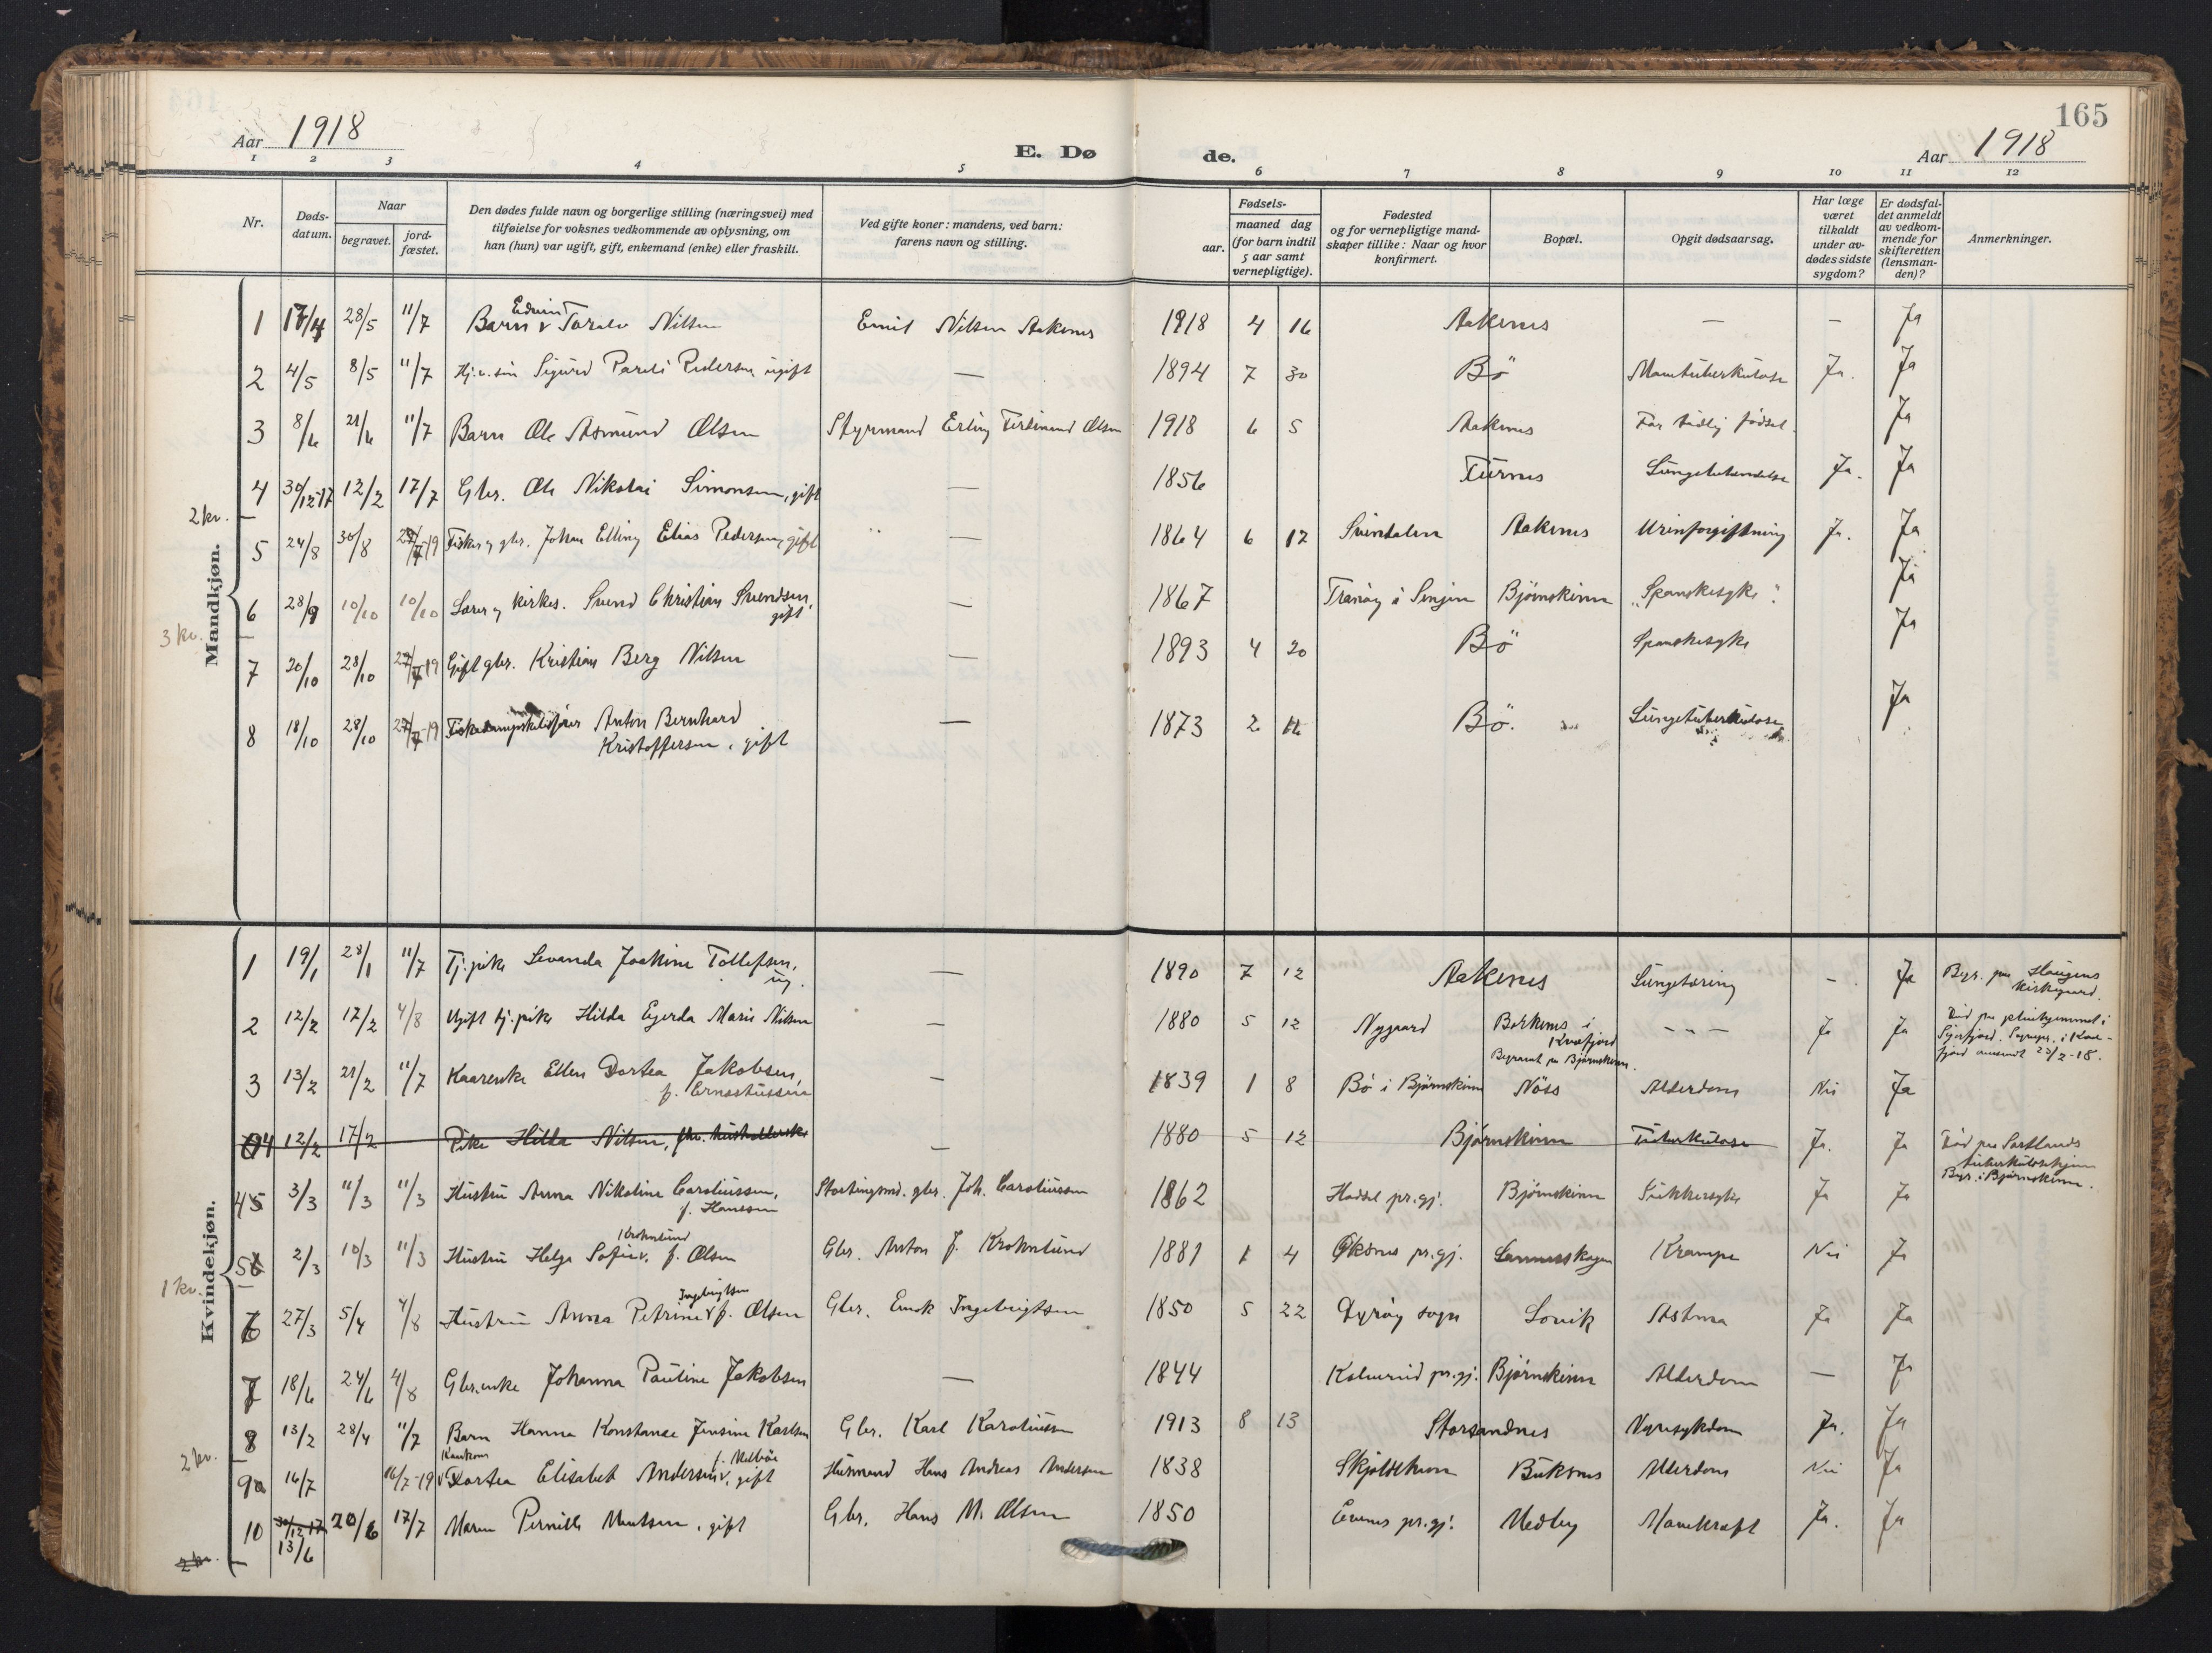 165
Aar 1918
E. Dø de.
Aar 1918
1 2 3 4 5 6 7 8 9 10 11 12
Nr.
Døds-datum.
Naar
begravet.
jord-fæstet.
Den dødes fulde navn og borgerlige stilling (næringsvei) med
tilføielse for voksnes vedkommende av oplysning, om
han (hun) var ugift, gift, enkemand (enke) eller fraskilt.
Ved gifte koner: mandens, ved barn:
farens navn og stilling.
Fødsels-
aar.
maaned dag
(for barn indtil
5 aar samt
vernepligtige).
Fødested
og for vernepligtige mand-
skaper tillike: Naar og hvor
konfirmert.
Bopæl.
Opgit dødsaarsag.
Har læge
været
tilkaldt
under av-
dødes sidste
sygdom?
Er dødsfal-
det anmeldt
av vedkom-
mende for
skifteretten
(lensman-
den)?
Anmerkninger.
Mandkjøn.
1 17/4 28/5 11/7 Barn Edvin Toralv Nilsen Emil Nilsen Aakenes 1918 4 16 Aakenes — — Ja
2 4/5 8/5 11/7 Sigurd Pareli Pedersen ugift — 1894 7 30 Bö Mavetuberkulose Ja. Ja
3 8/6 21/6 11/7 Barn Ole Asmund Olsen Styrmand Erling Ferdinand Olsen 1918 6 5 Aakenes For tidlig födsel. Ja
4 30/12-17 12/2 17/7 Gbr. Ole Nikolai Simonsen, gift — 1856 Furnes Lungebetændelse Ja. Ja
2 kv.
5 24/8 30/8 27/7-19 Fisker og gbr. Johan Elling Elias Pedersen, gift — 1864 6 17 Svindalen Aakenes Urinforgiftning Ja. Ja
6 28/9 10/10 10/10 Lærer og kirkes. Svend Christian Svendsen, gift — 1867 Tranöy i Senjen Björnskinn "Spanskesyke". Ja
3 kv.
7 20/10 28/10 27/7-19 Gift gbr. Kristian Berg Nilsen — 1893 4 20 Bö Spanskesyke Ja
8 18/10 28/10 27/7-19 Anton Bernhard
Kristoffersen, gift — 1873 2 Bö. Lungetuberkulose Ja
Kvindekjøn.
1 19/1 28/1 11/7 Tj.pike Sevanda Joakine Tollefsen, ug. — 1890 7 12 Aakenes Lungetæring - Ja Begr. paa Haugens
kirkegaard.
2 12/2 17/2 4/8 Ugift tj.pike Hilda Egerda Marie Nilsen — 1880 5 12 Nygaard Borkenes i
Kvæfjord
Begravet paa Björnskinn. - " - Ja Ja Död paa pleiehjemmet i
Sigerfjord.
3 13/2 21/2 11/7 Kaarenke Ellen Dortea Jakobsen,
f. Ernstussen — 1839 1 8 Bö i Björnskinn Nöss Alderdom Nei Ja
4 12/2 17/2 Pike Hilda Nilsen, — 1880 5 12 Björnskinn Tuberkulose Ja. Ja Död paa Sortlands
tuberkulosehjem
Begr. i Björnskinn.
45 3/3 11/3 11/3 Hustru Anna Nikoline Caroliussen,
f. Hansen Stortingsmd. gbr. Joh. Caroliussen 1862 Hadsel pr.gj. Björnskinn Sukkersyke Ja Ja
56 2/3 10/3 11/3 Hustru Helga Sofie v. Krohnlund f. Olsen Gbr. Anton J. Krohnlund 1881 1 4 Öksnes pr.gj. Krampe Nei Ja
1 kv.
6 27/3 5/4 4/8 Hustru Anna Petrine v Ingebrigtsen f. Olsen Gbr. Enok Ingebrigtsen 1850 5 22 Dyröy sogn Sovik Astma Ja Ja
7 18/6 24/6 4/8 Gbr.enke Johanna Pauline Jakobsen — 1844 Kolvereid pr.gj. Björnskinn Alderdom — Ja
8 13/2 28/4 11/7 Barn Hanna Konstanse Jensine Karlsen Gbr. Karl Karoliussen 1913 8 13 Storsandnes Nyresykdom Ja. Ja
2 kv.
9a 16/7 16/7-19 Kaarkone Dortea Elisabet Andersen, f. Melböe gift Husmand Hans Andreas Andersen 1838 Skjoldehavn Buksnes Alderdom Nei Ja
10 30/12 17 13/6 20/6 17/7 Maren Pernille Mentsen, gift Gbr. Hans M. Olsen 1850 Evenes pr.gj. Medby Mavekræft Ja. Ja
2 kv.